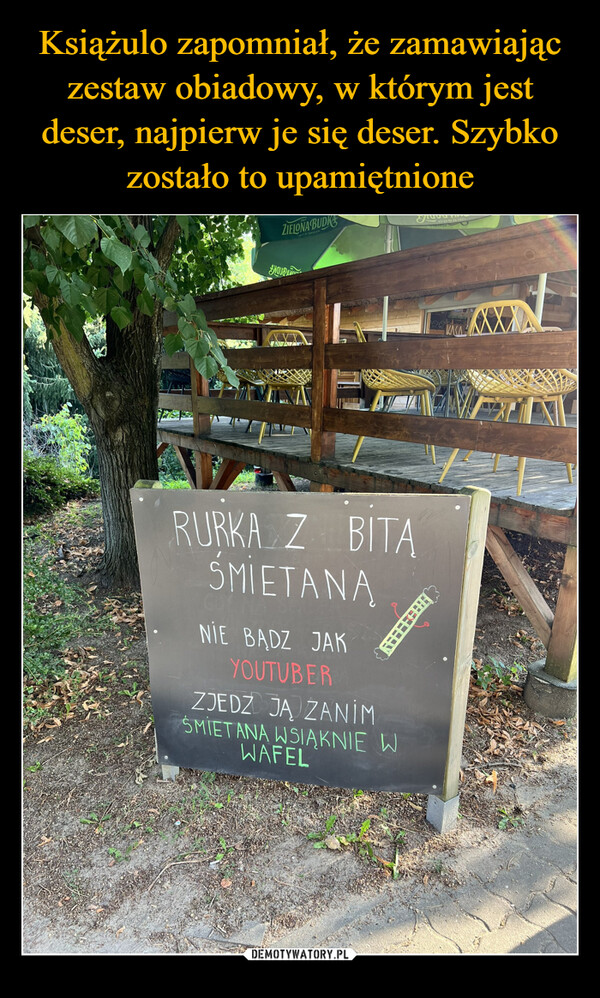 Książulo zapomniał, że zamawiając
zestaw obiadowy, w którym jest
deser, najpierw je się deser. Szybko
zostało to upamiętnione
ZIELONA BUDKA
RURKA Z BITĄ
ŚMIETANĄ
NIE BĄDZ JAK
YOUTUBER
ZJEDŹ JĄ ZANIM
ŚMIETANA WSIĄKNIE W
WAFEL
DEMOTYWATORY.PL